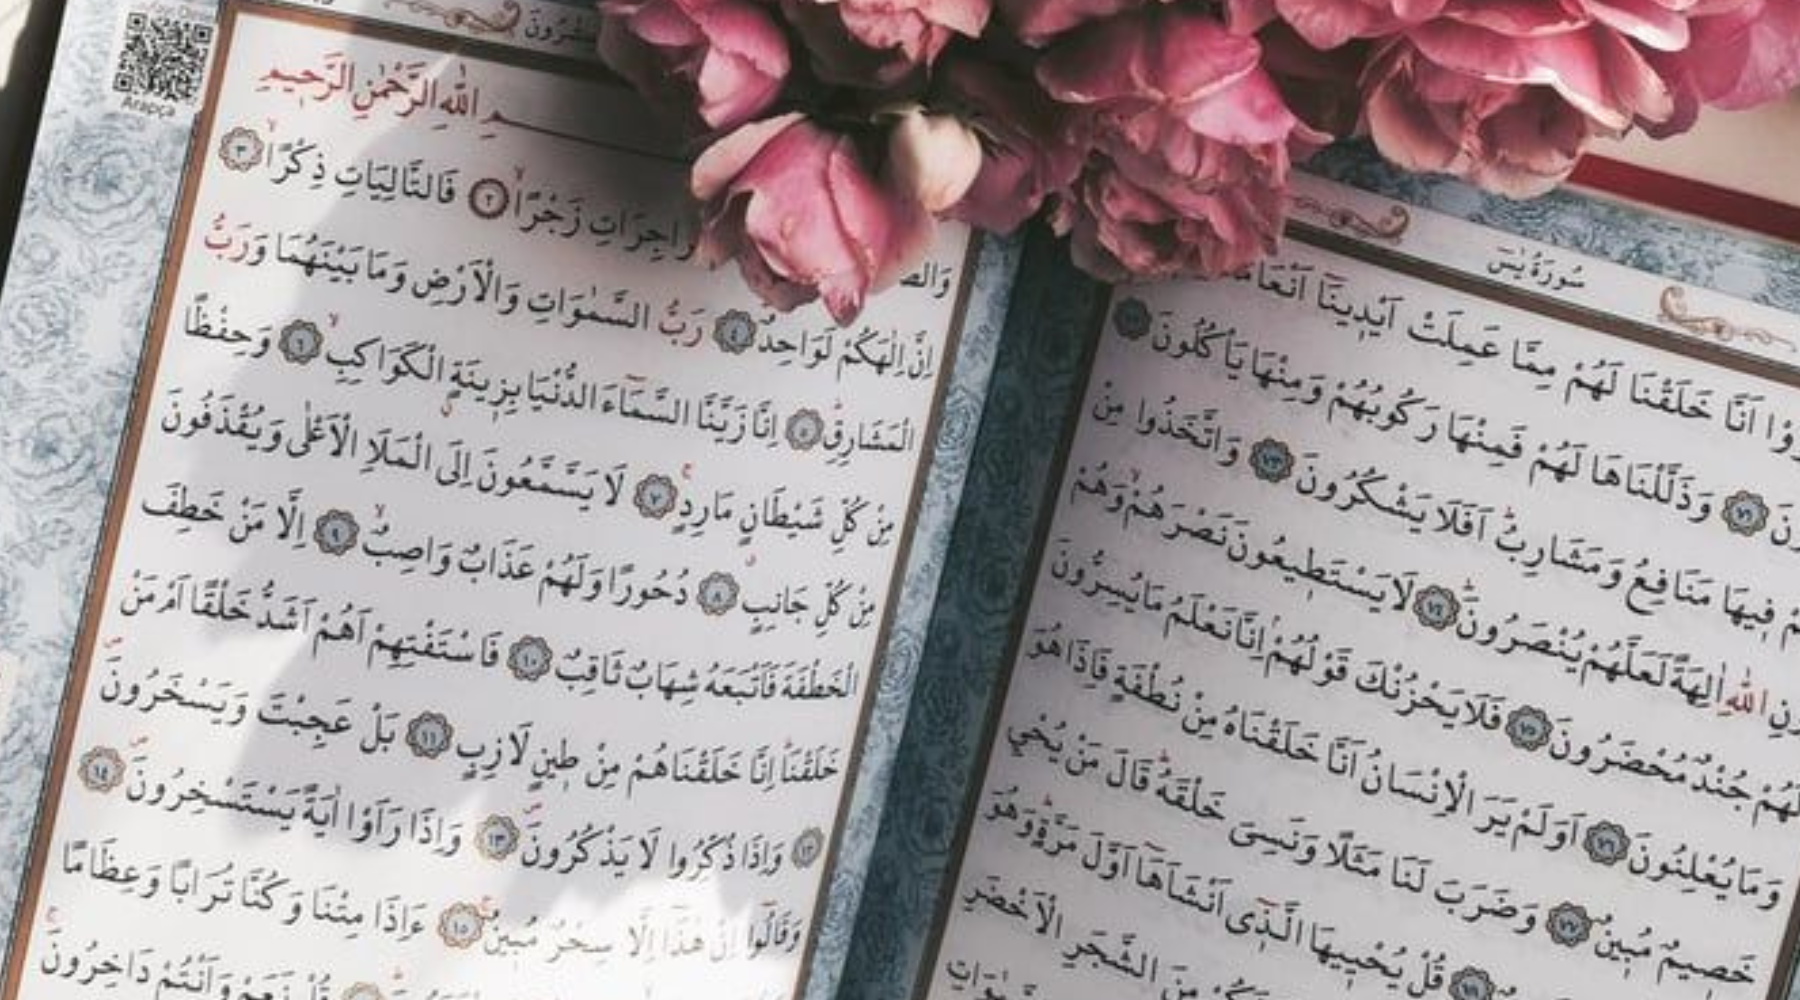 سُورَةُ يٰسٓ
اَنَّا خَلَقْنَا لَهُمْ مِمَّا عَمِلَتْ اَيْدِينَٓا
﴿٧١﴾ وَذَلَّلْنَاهَا لَهُمْ فَمِنْهَا رَكُوبُهُمْ وَمِنْهَا يَأْكُلُونَ
فِيهَا مَنَافِعُ وَمَشَارِبُۜ اَفَلَا يَشْكُرُونَ ﴿٧٣﴾ وَاتَّخَذُوا مِنْ
اللّٰهِ اٰلِهَةً لَعَلَّهُمْ يُنْصَرُونَۜ ﴿٧٤﴾ لَا يَسْتَطِيعُونَ نَصْرَهُمْۙ وَهُمْ
لَهُمْ جُنْدٌ مُحْضَرُونَ ﴿٧٥﴾ فَلَا يَحْزُنْكَ قَوْلُهُمْۢ اِنَّا نَعْلَمُ مَا يُسِرُّونَ
وَمَا يُعْلِنُونَ ﴿٧٦﴾ اَوَلَمْ يَرَ الْاِنْسَانُ اَنَّا خَلَقْنَاهُ مِنْ نُطْفَةٍ فَاِذَا هُوَ
خَصِيمٌ مُبِينٌ ﴿٧٧﴾ وَضَرَبَ لَنَا مَثَلًا وَنَسِىَ خَلْقَهُۜ قَالَ مَنْ يُحْيِي
قُلْ يُحْيِيهَا الَّذِٓى اَنْشَاَهَٓا اَوَّلَ مَرَّةٍۜ وَهُوَ
مِنَ الشَّجَرِ الْاَخْضَرِ
Arapça
اللّٰهِ الرَّحْمٰنِ الرَّحِيمِ
زَجْرًاۙ ﴿٢﴾ فَالتَّالِيَاتِ ذِكْرًاۙ ﴿٣﴾
اِنَّ اِلٰهَكُمْ لَوَاحِدٌۜ ﴿٤﴾ رَبُّ السَّمٰوَاتِ وَالْاَرْضِ وَمَا بَيْنَهُمَا وَرَبُّ
الْمَشَارِقِۜ ﴿٥﴾ اِنَّا زَيَّنَّا السَّمَٓاءَ الدُّنْيَا بِزِينَةٍۨ الْكَوَاكِبِۙ ﴿٦﴾ وَحِفْظًا
مِنْ كُلِّ شَيْطَانٍ مَارِدٍۚ ﴿٧﴾ لَا يَسَّمَّعُونَ اِلَى الْمَلَاِ الْاَعْلٰى وَيُقْذَفُونَ
مِنْ كُلِّ جَانِبٍۗ ﴿٨﴾ دُحُورًا وَلَهُمْ عَذَابٌ وَاصِبٌۙ ﴿٩﴾ اِلَّا مَنْ خَطِفَ
الْخَطْفَةَ فَاَتْبَعَهُ شِهَابٌ ثَاقِبٌ ﴿١٠﴾ فَاسْتَفْتِهِمْ اَهُمْ اَشَدُّ خَلْقًا اَمْ مَنْ
خَلَقْنَاۜ اِنَّا خَلَقْنَاهُمْ مِنْ طِينٍ لَازِبٍ ﴿١١﴾ بَلْ عَجِبْتَ وَيَسْخَرُونَۖ
﴿١٢﴾ وَاِذَا ذُكِّرُوا لَا يَذْكُرُونَۖ ﴿١٣﴾ وَاِذَا رَاَوْا اٰيَةً يَسْتَسْخِرُونَۖ ﴿١٤﴾
وَقَالُٓوا اِنْ هٰذَٓا اِلَّا سِحْرٌ مُبِينٌۚ ﴿١٥﴾ ءَاِذَا مِتْنَا وَكُنَّا تُرَابًا وَعِظَامًا
قُلْ نَعَمْ وَاَنْتُمْ دَاخِرُونَۚ